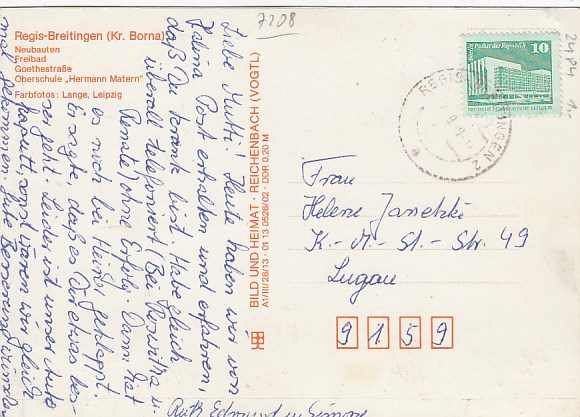 7208
Regis-Breitingen (Kr. Borna)
Neubauten
Freibad
Goethestraße
Oberschule „Hermann Matern“
Farbfotos: Lange, Leipzig
Liebe Mutti. Heute haben wir von
Helma Post erhalten und erfahren,
daß Du krank bist. Habe gleich
überall telefoniert (Bei Roswitha u.
Renate) ohne Erfolg. Dann hat
es noch bei Heinz geklappt.
Er sagte, daß es Dir etwas bes-
ser geht. Leider ist unser Auto
kaputt, sonst wären wir gleich
mal gekommen. Gute Besserung wünschen
Ruth Edmund u. Simone
BILD UND HEIMAT · REICHENBACH (VOGTL)
A1/III/26/13 01 13 0526/02 · DDR 0,20 M
Berlin, Palast der Republik
10
REGIS-BREITINGEN 2
2484
Frau
Helene Janetzki
K.-M.-St.-Str. 49
Lugau
9159